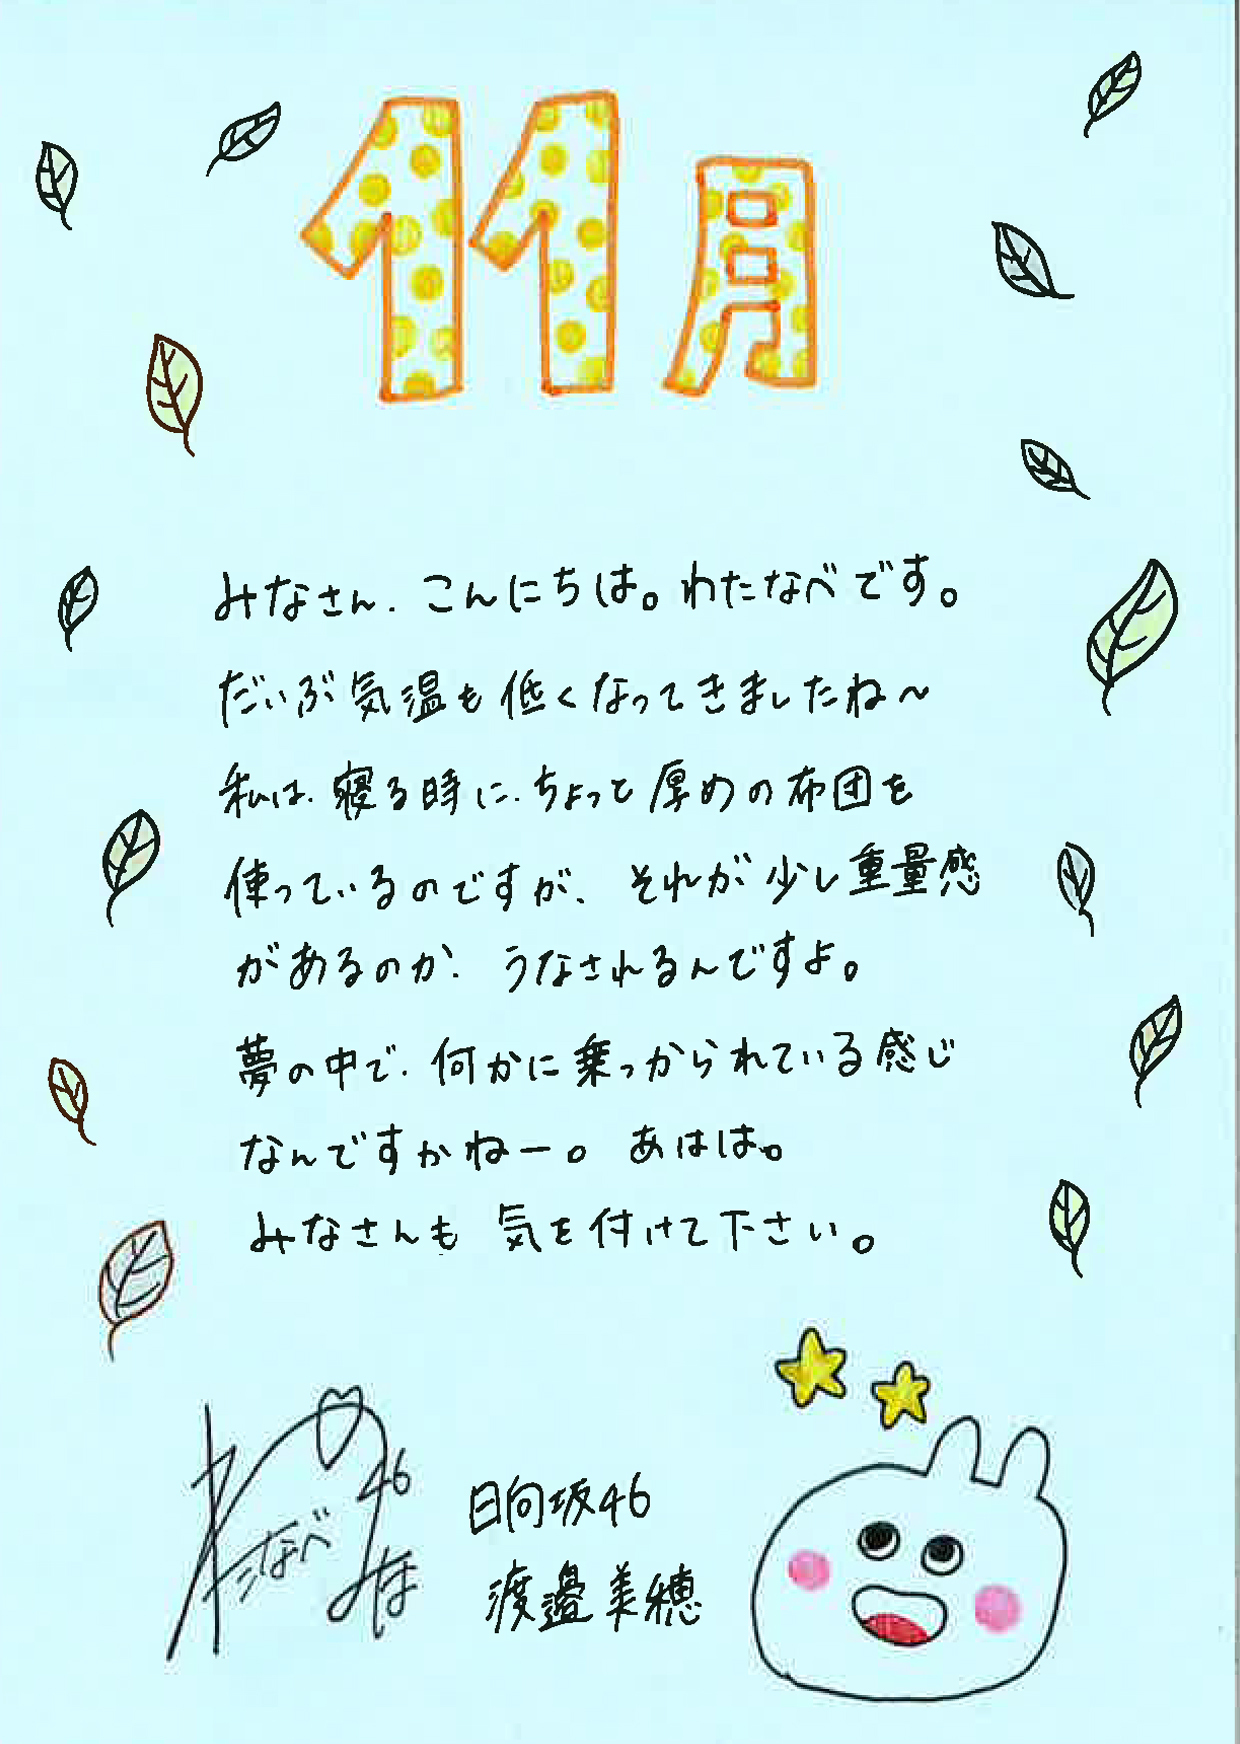 11月
みなさん、こんにちは。わたなべです。
だいぶ気温も低くなってきましたね〜
私は、寝る時に、ちょっと厚めの布団を
使っているのですが、それが少し重量感
があるのか、うなされるんですよ。
夢の中で、何かに乗っかられている感じ
なんですかねー。あはは。
みなさんも気を付けて下さい。
46
わたなべ
みほ
日向坂46
渡邉美穂